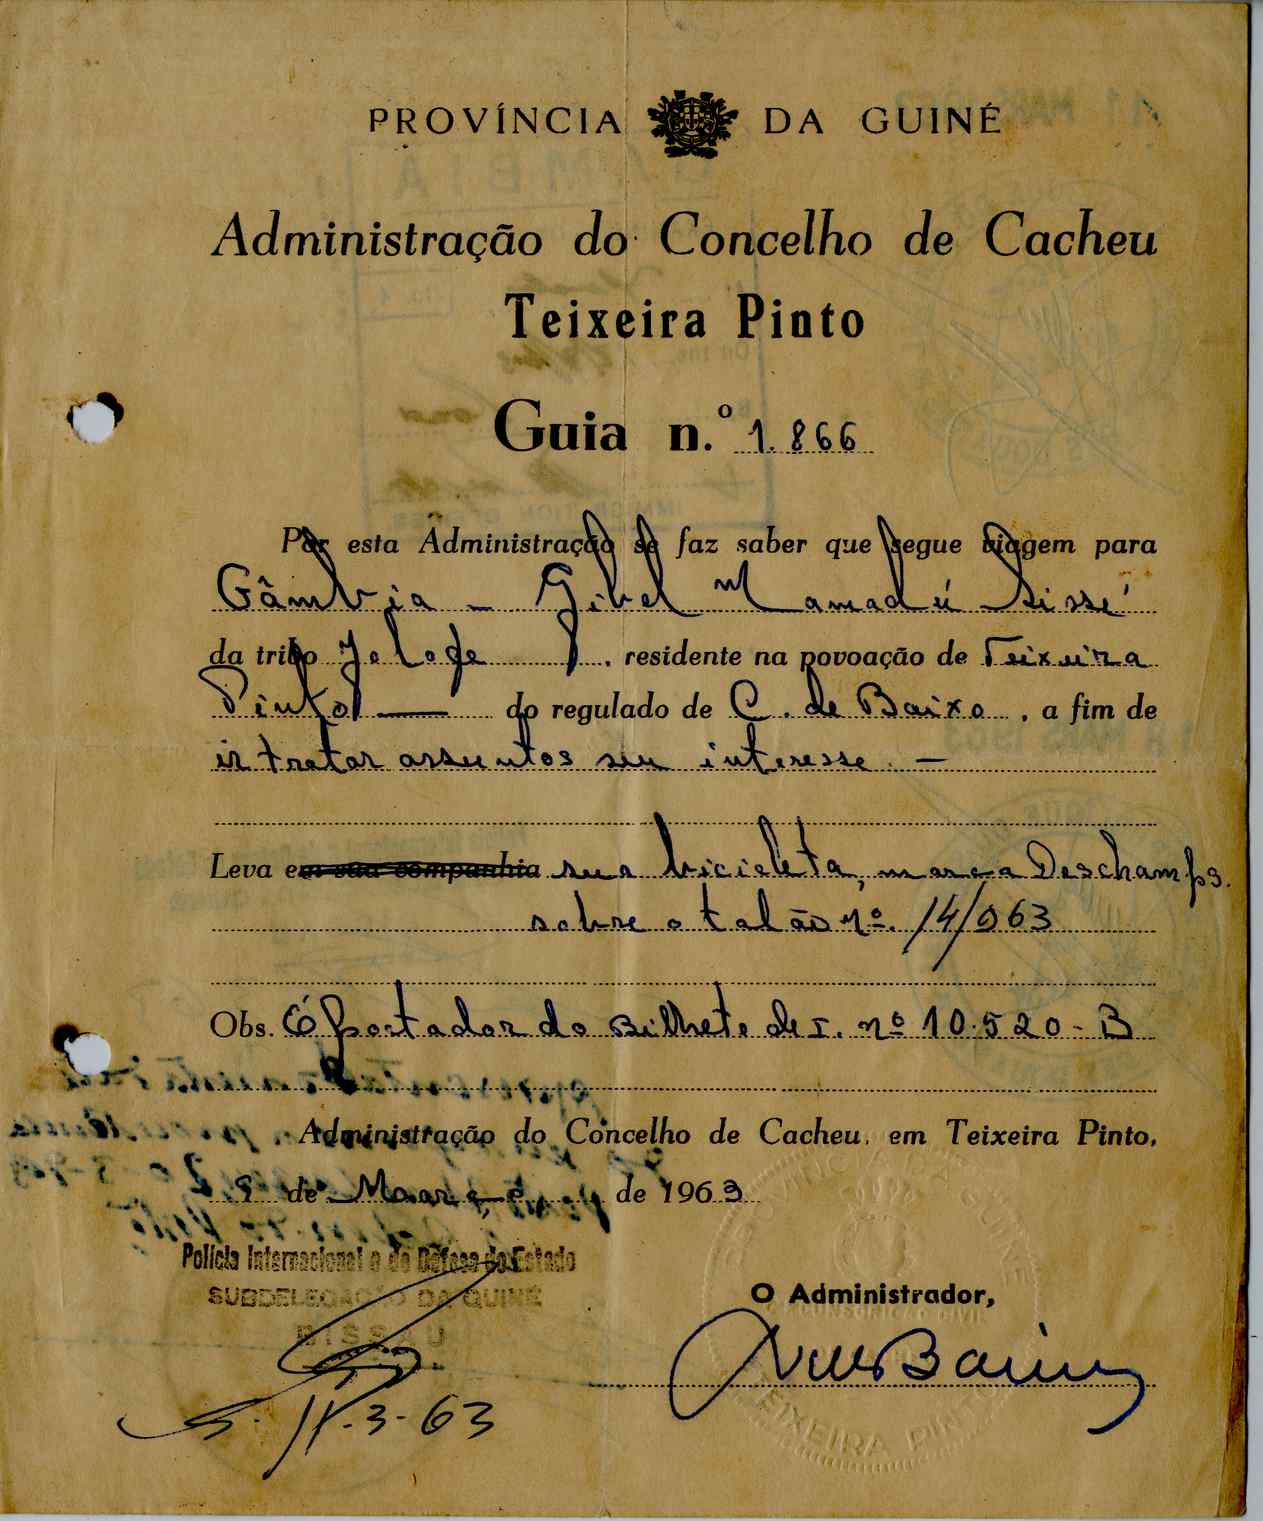 PROVÍNCIA DA GUINÉ
Administração do Concelho de Cacheu
Teixeira Pinto
Guia n.º 1.866
Por esta Administração se faz saber que segue viagem para
Gâmbia - Gibel Mamadú Sissé
da tribo Jalofe, residente na povoação de Teixeira
Pinto — do regulado de C. de Baixo, a fim de
ir tratar assuntos seu interesse. —
Leva em sua companhia sua bicicleta, marca Deschamps.
sobre o talão nº. 14/963
Obs. É portador do Bilhete de I. nº 10.520-B
Administração do Concelho de Cacheu, em Teixeira Pinto,
9 de Março de 1963
Polícia Internacional e de Defesa do Estado
SUBDELEGAÇÃO DA GUINÉ
BISSAU
O Administrador,
11-3-63
TEIXEIRA PINTO